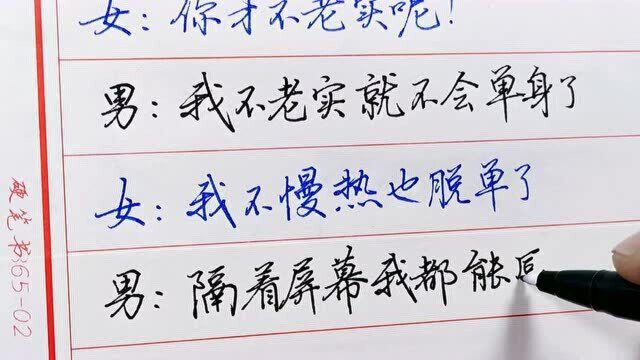 女：你才不老实呢！
男：我不老实就不会单身了
女：我不慢热也脱单了
男：隔着屏幕我都能
硬笔书365-02